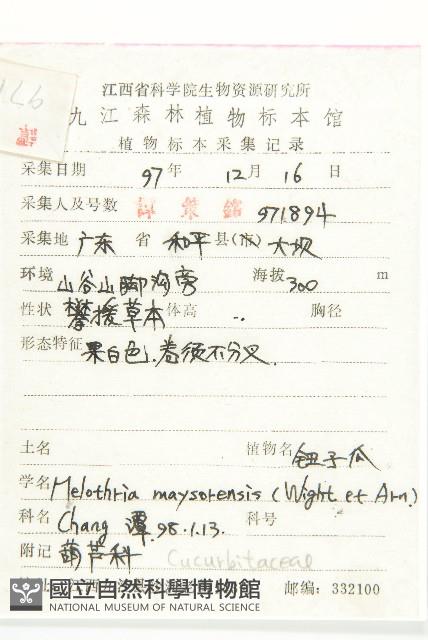 江西省科学院生物资源研究所
九江森林植物标本馆
植物标本采集记录
采集日期 97年 12月 16日
采集人及号数 譚策銘 971894
采集地 广东 省 和平 县(市) 大坝
环境 山谷山脚沟旁 海拔 300 m
性状 攀援草本 体高 胸径
形态特征 果白色.卷须不分叉.
土名 植物名 钮子瓜
学名 Melothria maysorensis (Wight et Arn.)
科名 Chang 譚.98.1.13. 科号
附记 葫芦科 Cucurbitaceae
國立自然科學博物館 邮编: 332100
NATIONAL MUSEUM OF NATURAL SCIENCE